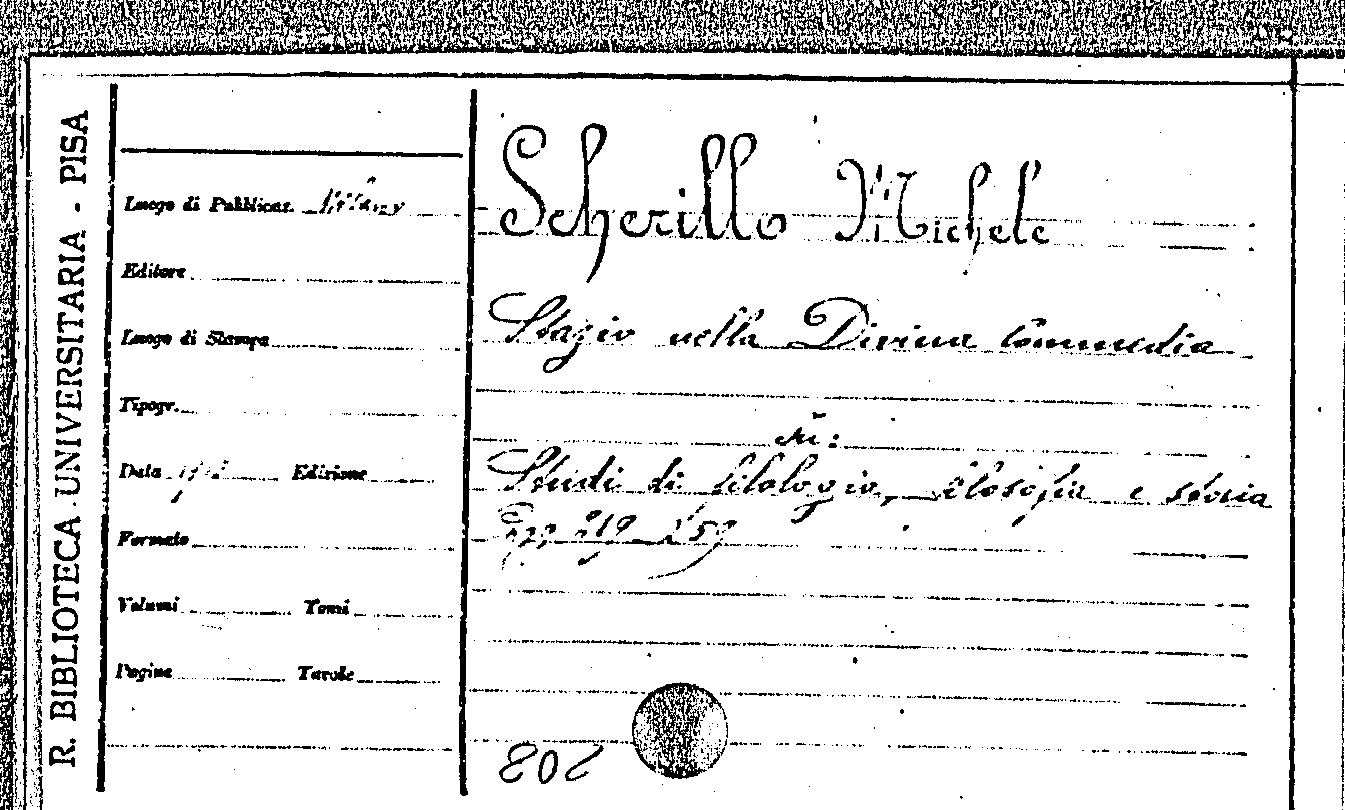 R. BIBLIOTECA UNIVERSITARIA - PISA
Luogo di Pubblicaz.
Editore
Luogo di Stampa
Tipogr.
Data Edizione
Formato
Volumi Tomi
Pagine Tavole
Scherillo Michele
Stazio nella Divina Commedia
in:
Studi di filologia, filosofia e storia
Pagg.
202